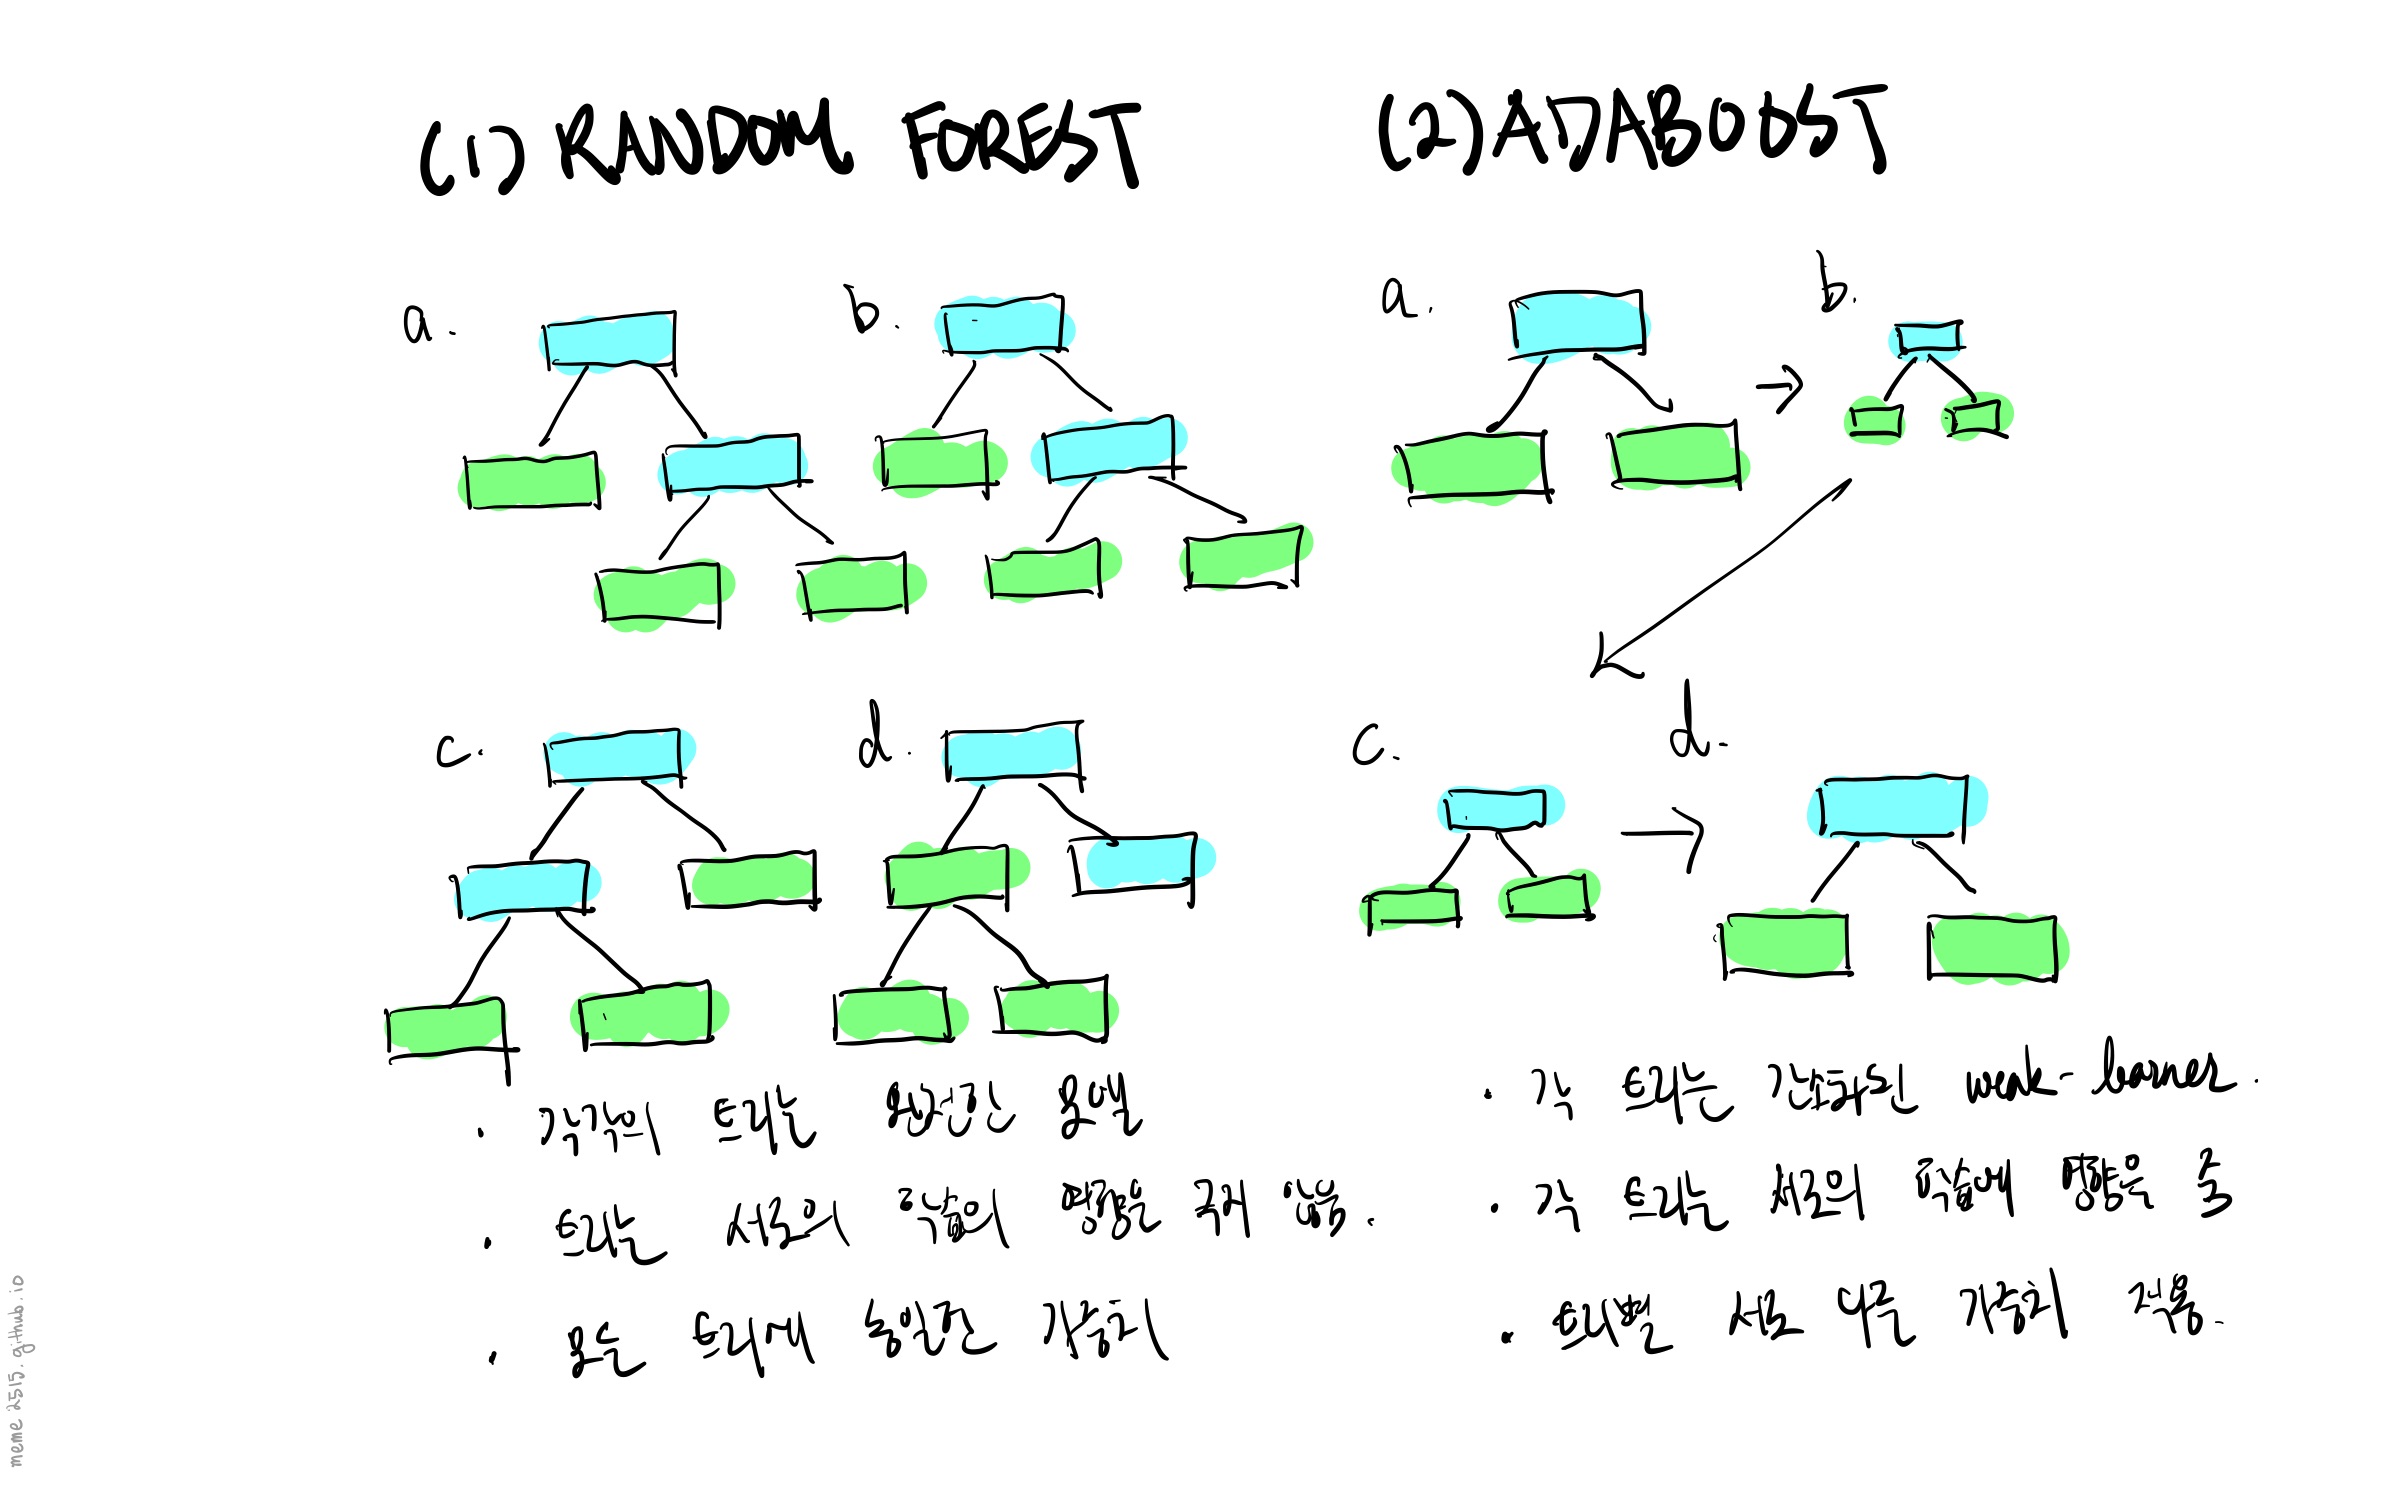 (1) RANDOM FOREST
a.
b.
c.
d.
· 각각의 트리는 완전한 모델
· 트리는 서로의 학습의 영향을 주지 않음.
· 모든 트리에 동일한 가중치
(2) ADABOOST
a.
b.
c.
d.
· 각 트리는 간소화된 weak-learner.
· 각 트리는 서로의 학습에 영향을 줌
· 트리별 서로 다른 가중치 적용.
meme2515.github.io